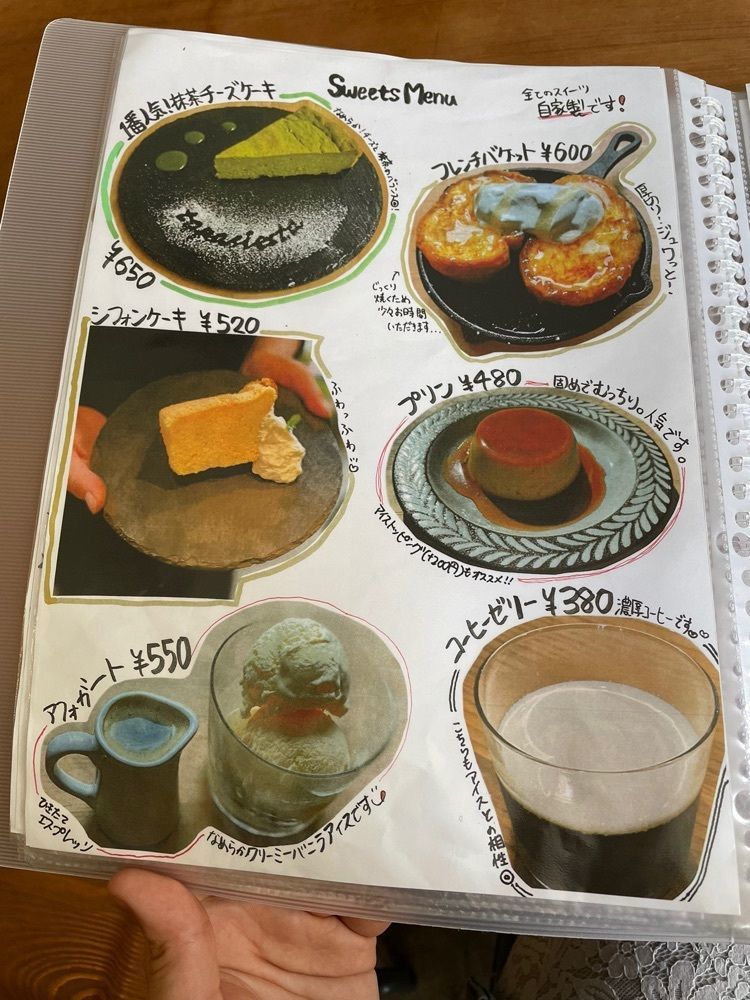 Sweets Menu
全てのスイーツ
自家製です！
1番人気！抹茶チーズケーキ
¥650
フレンチバケット ¥600
厚切り…ジュワッと…
じっくり
焼くため
少々お時間
いただきます…
シフォンケーキ ¥520
ふわっふわ♡
プリン ¥480
固めでむっちり。人気です。
アイストッピング(+200円)もオススメ!!
アフォガート ¥550
ひきたて
エスプレッソ
なめらかクリーミーバニラアイスです
コーヒーゼリー ¥380
濃厚コーヒーです
こちらもアイスとの相性◎